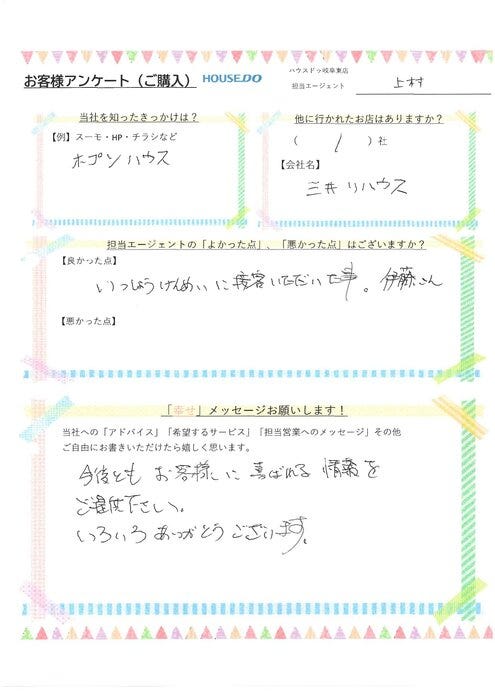 お客様アンケート（ご購入） HOUSEDO
ハウスドゥ岐阜東店
担当エージェント 上村
当社を知ったきっかけは？
【例】スーモ・HP・チラシなど
オープンハウス
他に行かれたお店はありますか？
（ 1 ）社
【会社名】
三井リハウス
担当エージェントの「よかった点」、「悪かった点」はございますか？
【良かった点】
いっしょうけんめいに接客いただいた事。伊藤さん
【悪かった点】
「幸せ」メッセージお願いします！
当社への「アドバイス」「希望するサービス」「担当営業へのメッセージ」その他
ご自由にお書きいただけたら嬉しく思います。
今後とも お客様に 喜ばれる 情報を
ご提供下さい。
いろいろありがとうございます。